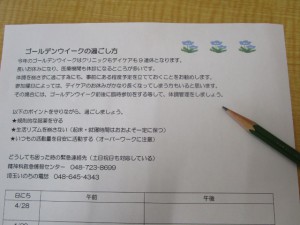 ゴールデンウィークの過ごし方
今年のゴールデンウイークはクリニックもデイケアも9連休となります。
長いお休みになり、医療機関も休診になるところが多いです。
体調を崩さずに過ごす為にも、事前にある程度予定を立てておくことをお勧めします。
参加曜日によっては、デイケアのお休みがかなり長くなってしまう方もいると思います。
その場合には、ゴールデンウイーク前後に臨時参加をする等して、体調管理をしましょう。
以下のポイントを守りながら、過ごしましょう。
★規則的な服薬を守る
★生活リズムを崩さない(起床・就寝時間はおおよそ一定に保つ)
★いつもの活動量を目安に活動する(オーバーワークに注意)
どうしても困った時の緊急連絡先(土日祝日も対応している)
精神科救急情報センター 048-723-8699
埼玉いのちの電話 048-645-4343
日にち 午前 午後
4/28